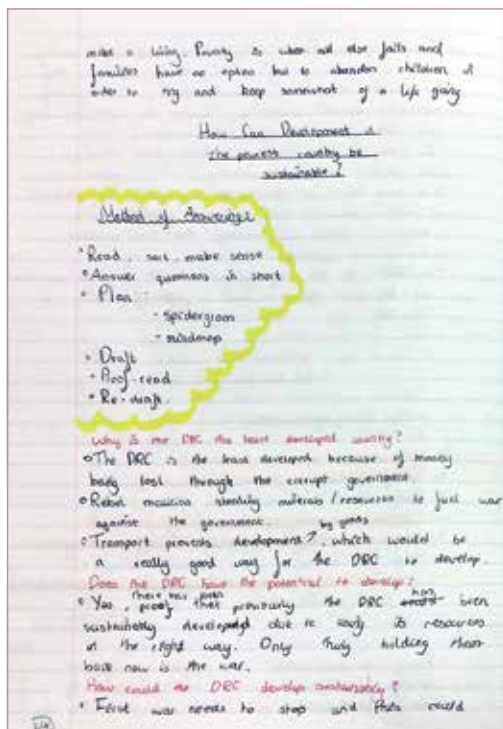 make a living. Poverty is when all else fails and
families have no option but to abandon children, in
order to try and keep somewhat of a life going
How Can Development in
the poorest country be
sustainable?
Method of
• Read, sort, make sense
• Answer questions in short
• Plan
- spidergram
- mindmap
• Draft
• Proof-read
• Re-draft.
Why is the DRC the least developed country?
• The DRC is the least developed because of money
being lost through the corrupt government.
• Rebel stealing materials/resources to fuel war
against the government. by goods
• Transport prevents development?, which would be
a really good way for the DRC to develop.
Does the DRC have the potential to develop?
there has been
• Yes, proof that previously the DRC has been
sustainably developed due to its resources
in the right way. Only thing holding them
back now is the war.
How could the DRC develop sustainably?
• First war needs to stop and could